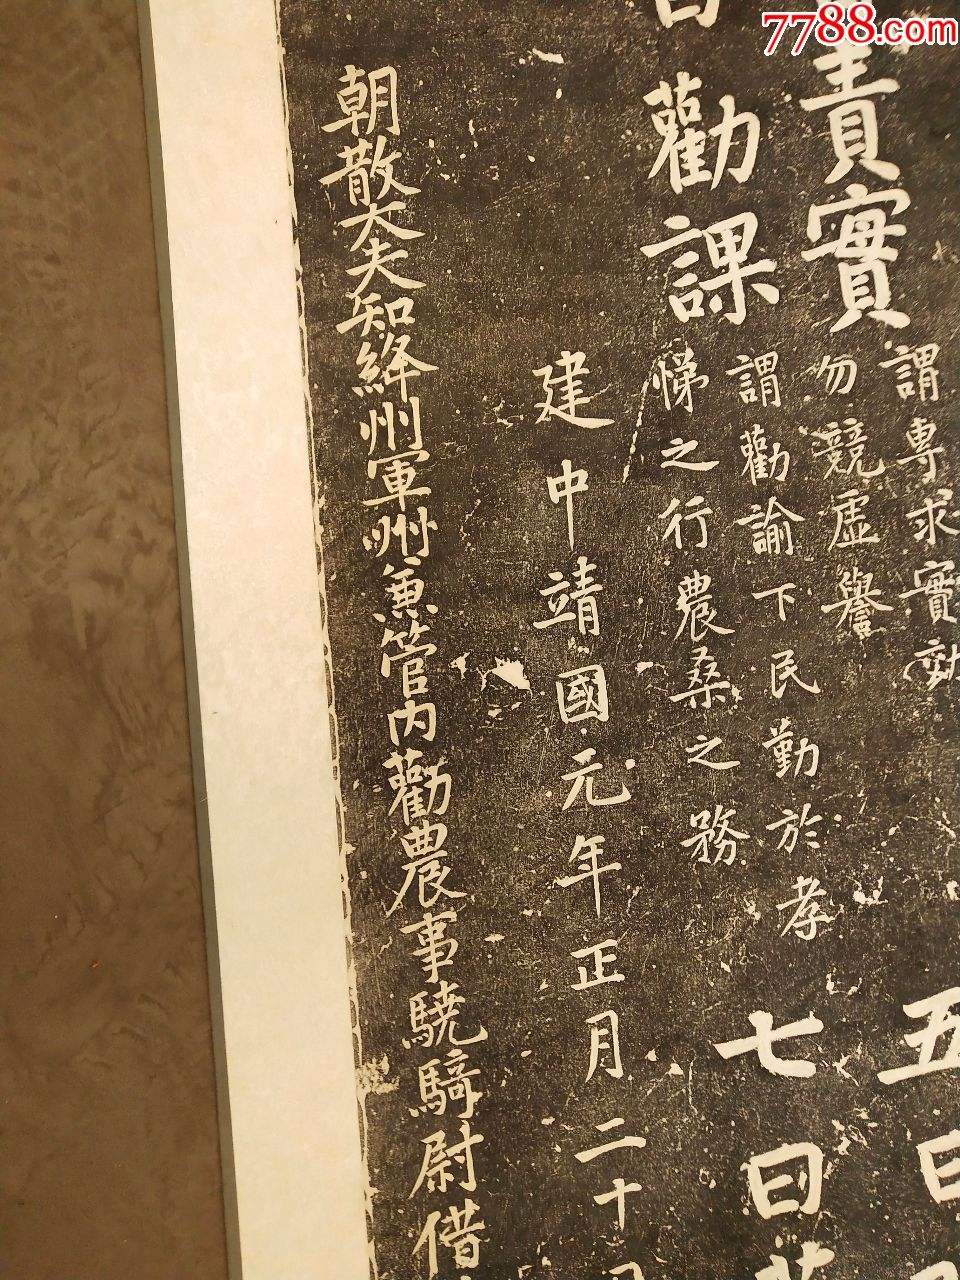 7788.com
責實
謂專求實効
勿競虛譽
五曰
曰勸課
謂勸諭下民勤於孝
悌之行農桑之務
七曰
建中靖國元年正月二十
朝散大夫知絳州軍州兼管内勸農事驍騎尉借